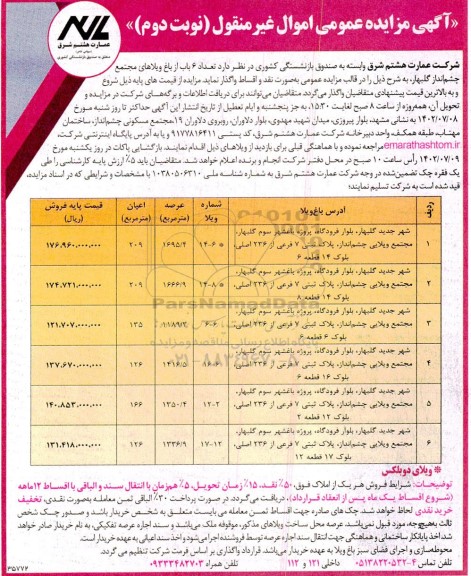 «آگهی مزایده عمومی اموال غیر منقول (نوبت دوم)»
عمارت هشتم شرق
شرکت عمارت هشتم شرق وابسته به صندوق بازنشستگی کشوری در نظر دارد تعداد ۶ باب از باغ ویلاهای مجتمع
چشم‌انداز گلبهار، به شرح ذیل را در قالب مزایده عمومی به‌صورت نقد و اقساط واگذار نماید. مزایده از قیمت های پایه ذیل شروع
و به بالاترین قیمت پیشنهادی متقاضیان واگذار می‌گردد. متقاضیان می‌توانند برای دریافت اطلاعات و برگه‌های شرکت در مزایده و
تحویل آن، همه‌روزه از ساعت ۸ صبح لغایت ۱۵:۳۰، به جز پنجشنبه و ایام تعطیل از تاریخ انتشار این آگهی حداکثر تا روز شنبه مورخ
۱۴۰۲/۰۷/۰۸ به نشانی مشهد، بلوار پیروزی، میدان شهید مهدوی، بلوار دلاوران، روبروی دلاوران ۱۹، مجتمع مسکونی چشم‌انداز، ساختمان
مهتاب، طبقه همکف، واحد دبیرخانه شرکت عمارت هشتم شرق، کد پستی ۹۱۷۷۸۱۶۴۱۱ و یا به آدرس پایگاه اینترنتی شرکت،
emarathashtom.ir مراجعه نموده و با هماهنگی قبلی برای بازدید از ویلاهای ذیل اقدام نمایند. بازگشایی پاکات در روز یکشنبه مورخ
۱۴۰۲/۰۷/۰۹ رأس ساعت ۱۰ صبح در محل دفتر شرکت انجام و برنده اعلام خواهد شد. متقاضیان باید ۵٪ ارزش پایه کارشناسی را طی
یک فقره چک تضمین‌شده در وجه شرکت عمارت هشتم شرق به شماره شناسه ملی ۱۰۳۸۰۵۰۶۳۱۰ با مشخصات و شرایطی که در اسناد مزایده،
قید شده است به شرکت تسلیم نمایند؛
ردیف آدرس باغ‌ویلا شماره ویلا عرصه (مترمربع) اعیان (مترمربع) قیمت پایه فروش (ریال)
۱ شهر جدید گلبهار، بلوار فرودگاه، پروژه باغشهر سوم گلبهار، مجتمع ویلایی چشم‌انداز، پلاک ثبتی ۷ فرعی از ۲۳۶ اصلی، بلوک ۱۴ قطعه ۶ ۱۴-۶ * ۱۶۹۵/۴ ۲۰۹ ۱۷۶.۹۶۰.۰۰۰.۰۰۰
۲ شهر جدید گلبهار، بلوار فرودگاه، پروژه باغشهر سوم گلبهار، مجتمع ویلایی چشم‌انداز، پلاک ثبتی ۷ فرعی از ۲۳۶ اصلی، بلوک ۱۴ قطعه ۸ ۱۴-۸ * ۱۶۶۶/۹ ۲۰۹ ۱۷۴.۷۲۱.۰۰۰.۰۰۰
۳ شهر جدید گلبهار، بلوار فرودگاه، پروژه باغشهر سوم گلبهار، مجتمع ویلایی چشم‌انداز، پلاک ثبتی ۷ فرعی از ۲۳۶ اصلی، بلوک ۶ قطعه ۶ ۶-۶ ۱۳۵ ۱۲۱.۷۰۷.۰۰۰.۰۰۰
۴ شهر جدید گلبهار، بلوار فرودگاه، پروژه باغشهر سوم گلبهار، مجتمع ویلایی چشم‌انداز، پلاک ثبتی ۷ فرعی از ۲۳۶ اصلی، بلوک ۱۶ قطعه ۶ ۱۲۶ ۱۳۷.۶۷۰.۰۰۰.۰۰۰
۵ شهر جدید گلبهار، بلوار فرودگاه، پروژه باغشهر سوم گلبهار، مجتمع ویلایی چشم‌انداز، پلاک ثبتی ۷ فرعی از ۲۳۶ اصلی، بلوک ۱۲ قطعه ۲ ۱۲-۲ ۱۳۵۰/۴ ۱۶۶ ۱۴۰.۸۵۳.۰۰۰.۰۰۰
۶ شهر جدید گلبهار، بلوار فرودگاه، پروژه باغشهر سوم گلبهار، مجتمع ویلایی چشم‌انداز، پلاک ثبتی ۷ فرعی از ۲۳۶ اصلی، بلوک ۱۷ قطعه ۱۲ ۱۷-۱۲ ۱۳۳۶/۹ ۱۲۶ ۱۳۱.۴۱۸.۰۰۰.۰۰۰
* ویلای دوبلکس
توضیحات: شرایط فروش هر یک از املاک فوق، ۵۰٪ نقد، ۱۵٪ زمان تحویل، ۵٪ هم‌زمان با انتقال سند و الباقی با اقساط ۱۲ماهه
(شروع اقساط یک ماه پس از انعقاد قرارداد)، دریافت می‌گردد. در صورت پرداخت ۳۰٪ الباقی ثمن معامله به‌صورت نقدی، تخفیف
خرید نقدی لحاظ خواهد شد. چک های صادره جهت اقساط ثمن معامله می بایست متعلق به شخص خریدار باشد و صدور چک شخص
ثالث به‌هیچ‌وجه، مورد قبول نمی‌باشد. عرصه محل ساخت ویلاهای مذکور، موقوفه ملک می‌باشد و سند اجاره عرصه تفکیکی، به نام خریدار صادر خواهد
شد. اخذ پایانکار ساختمانی و هماهنگی جهت انتقال سند اجاره عرصه توسط فروشنده اجرامی‌شود و اخذ سند اعیانی به عهده خریدار است.
محوطه‌سازی و اجرای فضای سبز باغ ویلا به عهده خریدار می‌باشد. قرارداد واگذاری بر اساس فرمت شرکت تنظیم می گردد.
تلفن تماس ۴-۰۵۱۳۸۲۲۰۵۳۲ داخلی ۱۲۱ و ۱۱۲ تلفن همراه ۰۹۳۳۳۴۸۲۷۰۳
۳۵۷۷۶
ParsNamadData
پایگاه اطلاع رسانی مناقصه و مزایده